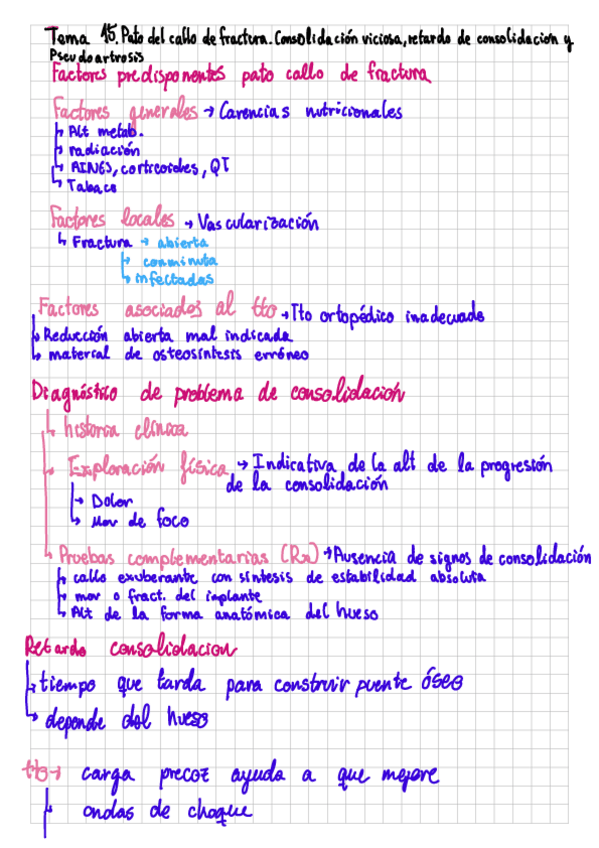 Tema 15. Pato del callo de fractura. Consolidación viciosa, retardo de consolidación y
Pseudoartrosis
Factores predisponentes pato callo de fractura
Factores generales → Carencias nutricionales
↳ Alt metab.
↳ radiación
↳ AINES, corticoides, QT
↳ Tabaco
Factores locales → Vascularización
↳ Fractura → abierta
↳ conminuta
↳ infectadas
Factores asociados al tto → Tto ortopédico inadecuado
↳ Reducción abierta mal indicada
↳ material de osteosíntesis erróneo
Diagnóstico de problema de consolidación
↳ historia clínica
↳ Exploración física → Indicativa de la alt de la progresión
de la consolidación
↳ Dolor
↳ Mov de foco
↳ Pruebas complementarias (Rx) → Ausencia de signos de consolidación
↳ callo exuberante con síntesis de estabilidad absoluta
↳ mov o fract. del implante
↳ Alt de la forma anatómica del hueso
Retardo consolidacion
↳ tiempo que tarda para construir puente óseo
↳ depende del hueso
tto → carga precoz ayuda a que mejore
↳ ondas de choque